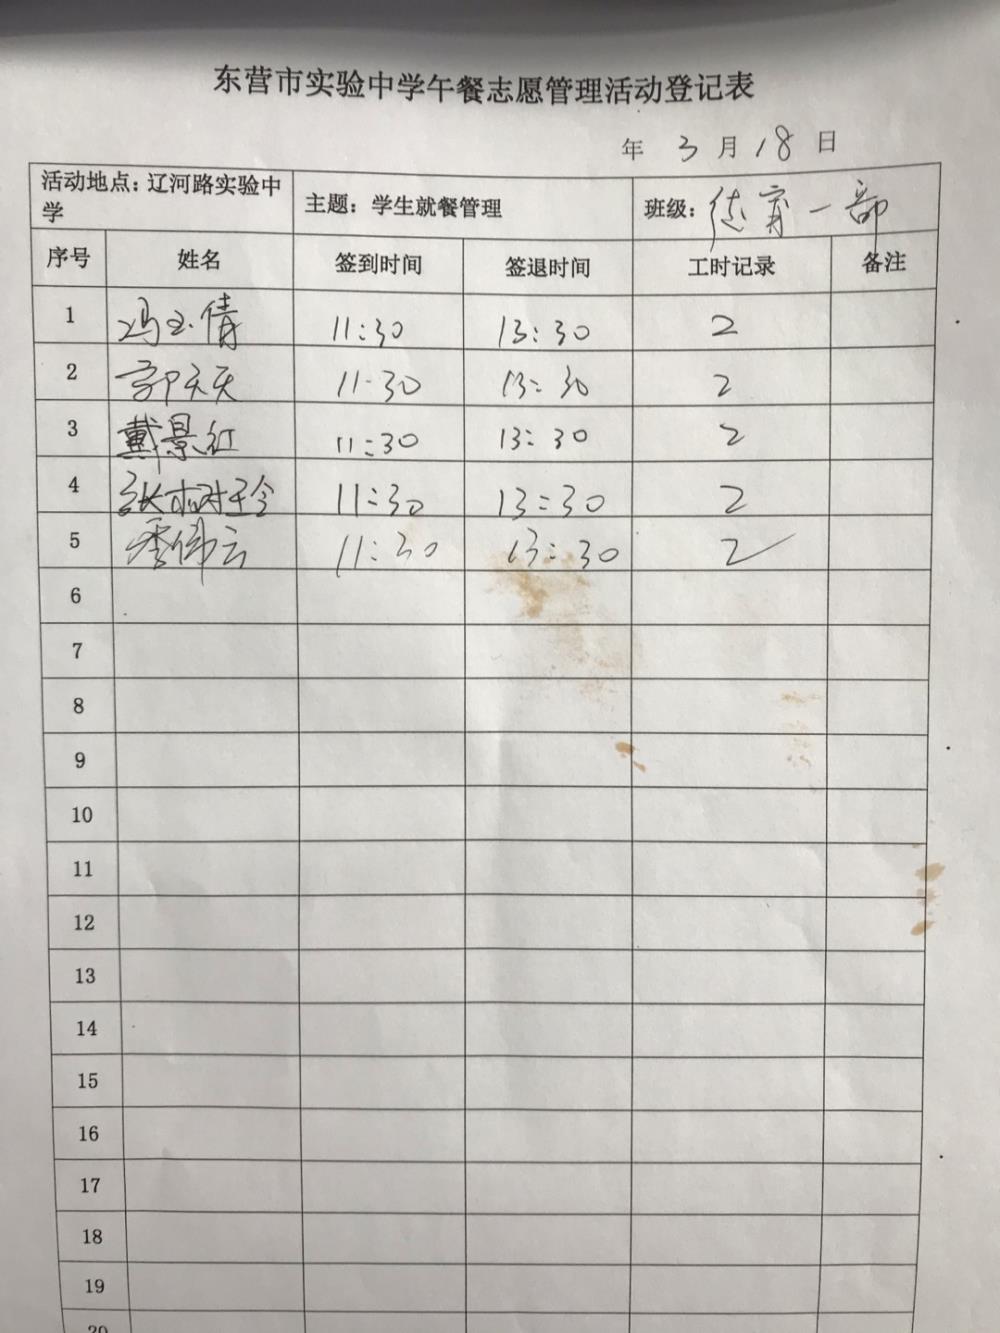 东营市实验中学午餐志愿管理活动登记表
年 3 月 18 日
活动地点：辽河路实验中学 主题：学生就餐管理 班级：德育一部
序号 姓名 签到时间 签退时间 工时记录 备注
1 冯玉倩 11:30 13:30 2
2 郭天天 11:30 13:30 2
3 戴景红 11:30 13:30 2
4 张树玲 11:30 13:30 2
5 季伟云 11:30 13:30 2
6
7
8
9
10
11
12
13
14
15
16
17
18
19
20